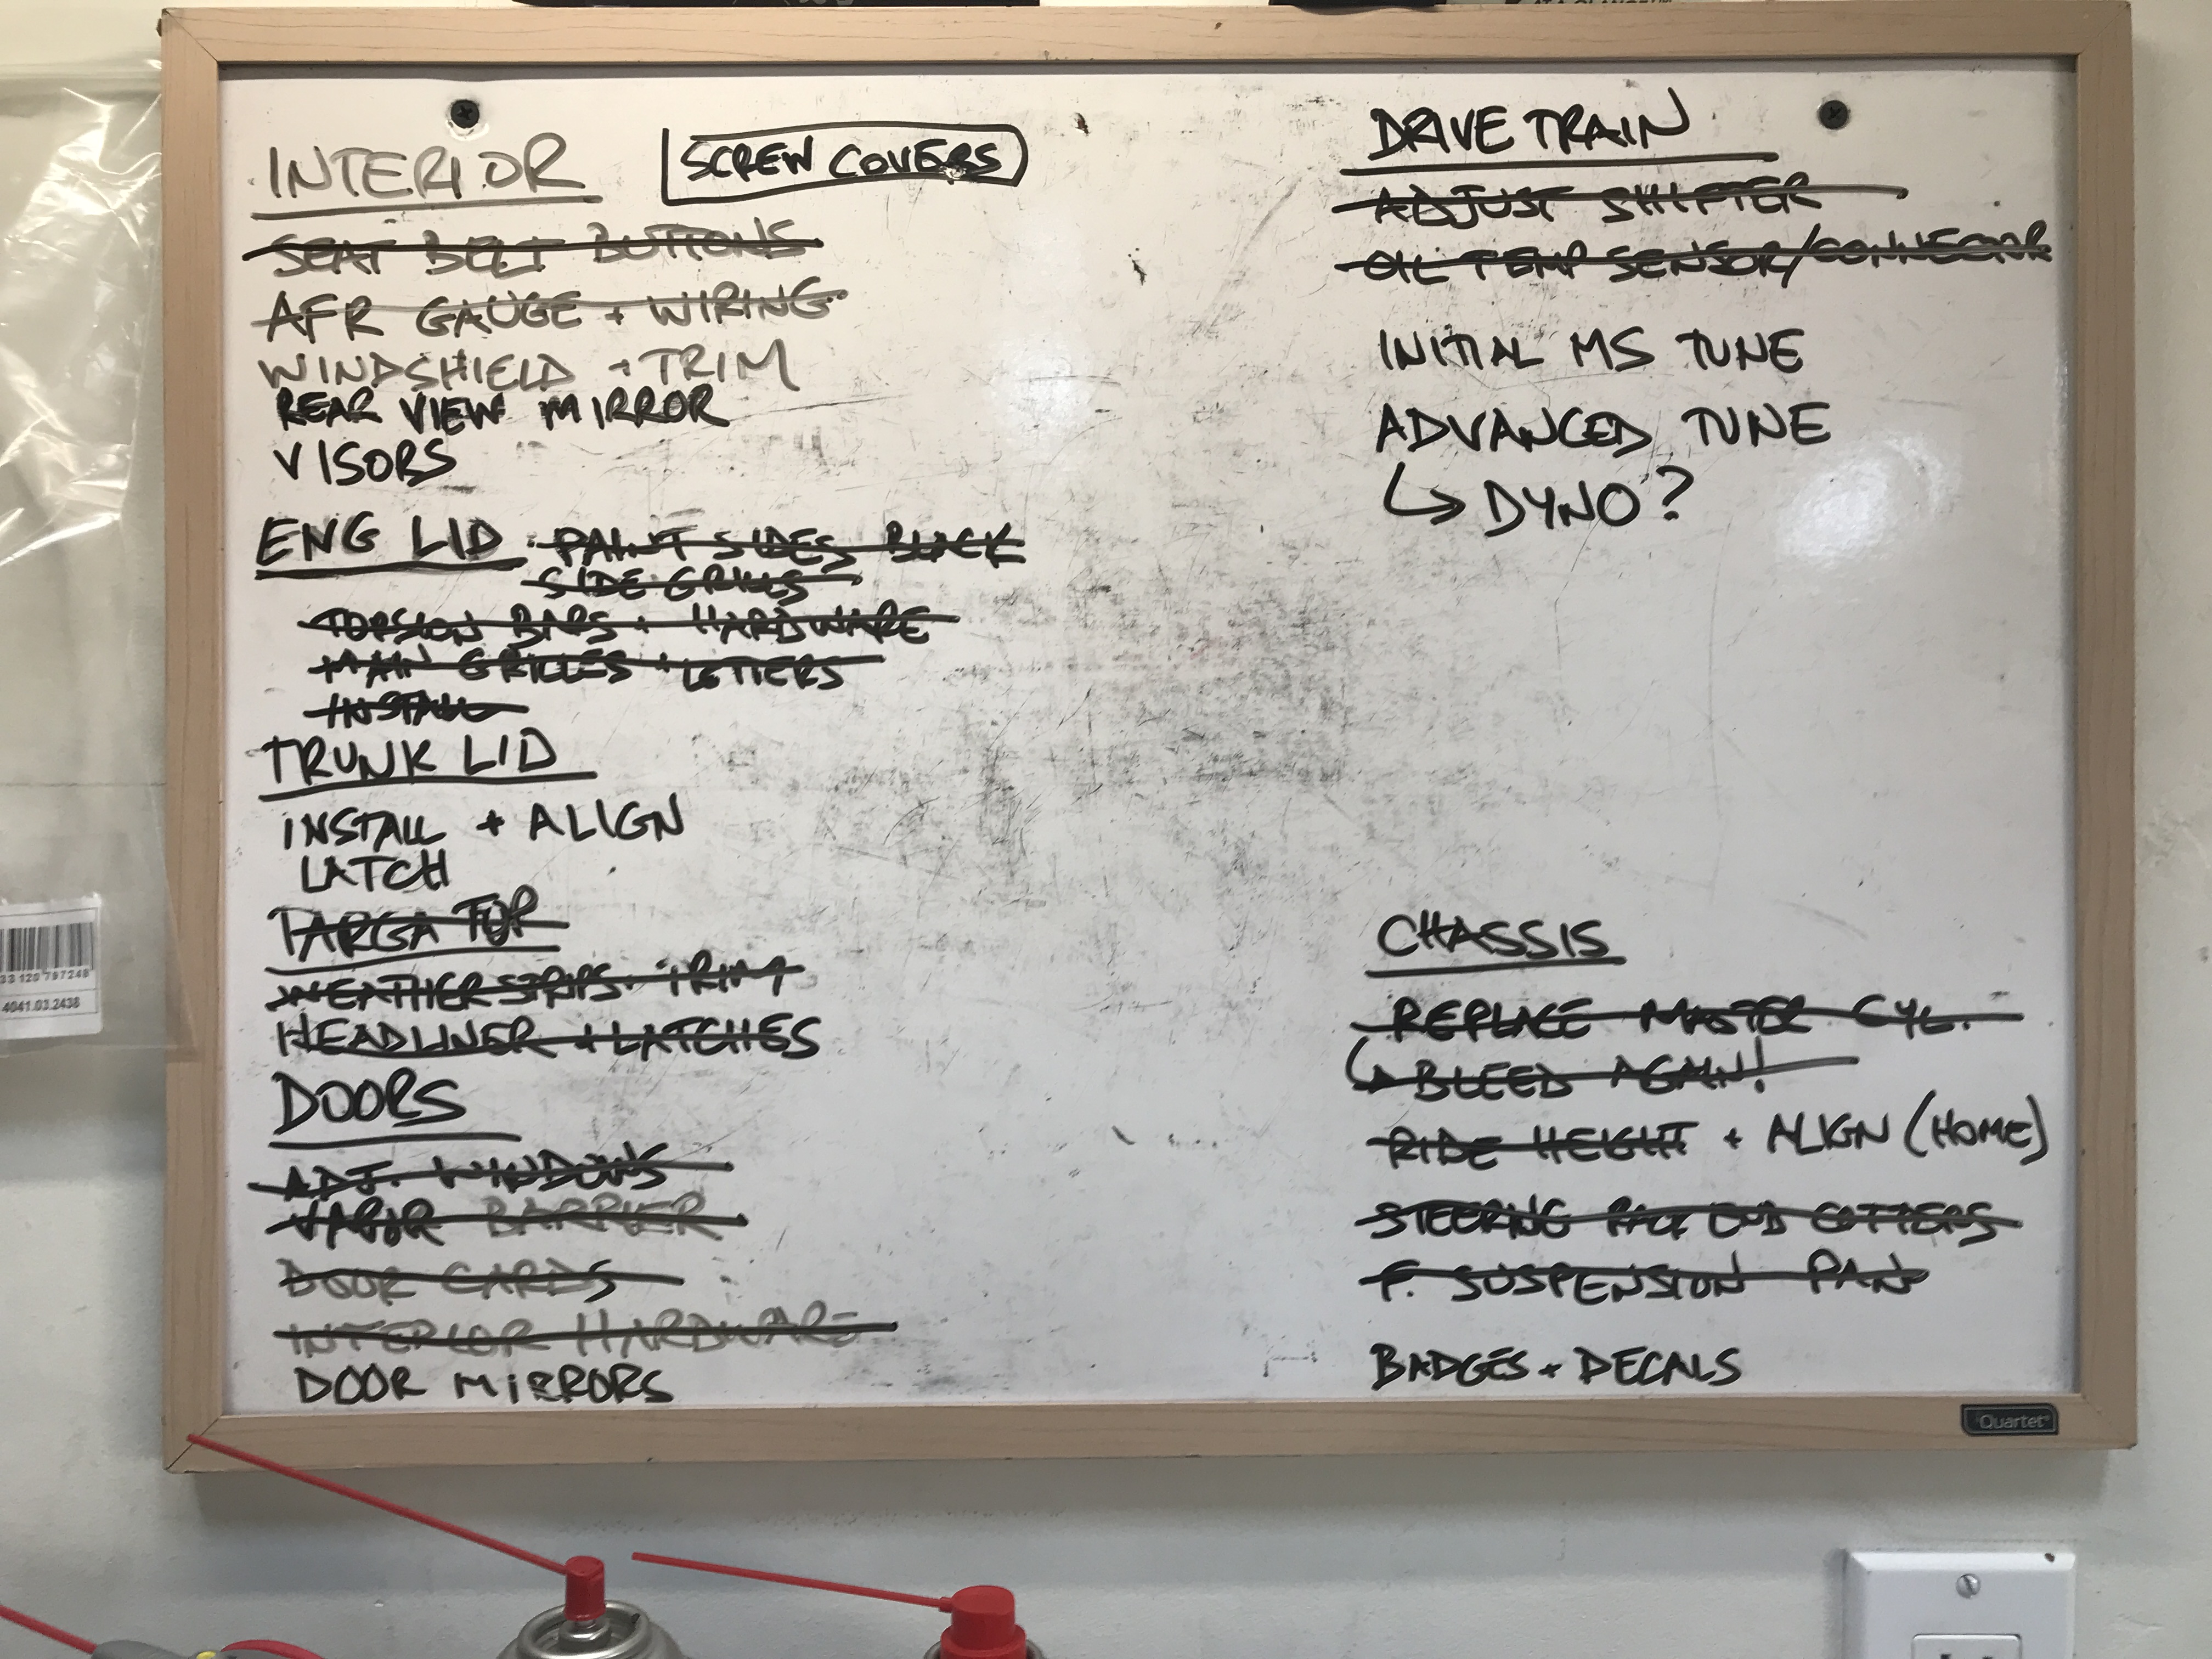 INTERIOR
SCREW COVERS
SEAT BELT BUTTONS
AFR GAUGE + WIRING
WINDSHIELD + TRIM
REAR VIEW MIRROR
VISORS
ENG LID PAINT SIDES BLACK
SIDE GRILLES
TORSION BARS + HARDWARE
MAIN GRILLES + LETTERS
INSTALL
TRUNK LID
INSTALL + ALIGN
LATCH
TARGA TOP
WEATHERSTRIPS + TRIM
HEADLINER + LATCHES
DOORS
ADJ. WINDOWS
VAPOR BARRIER
DOOR CARDS
INTERIOR HARDWARE
DOOR MIRRORS
DRIVE TRAIN
ADJUST SHIFTER
OIL TEMP SENSOR/CONNECTOR
INITIAL MS TUNE
ADVANCED TUNE
↳ DYNO?
CHASSIS
REPLACE MASTER CYL.
↳ BLEED AGAIN!
RIDE HEIGHT + ALIGN (HOME)
STEERING RACK END COTTERS
F. SUSPENSION PAN
BADGES + DECALS
Quartet
33 120 797248
4041.03.2438